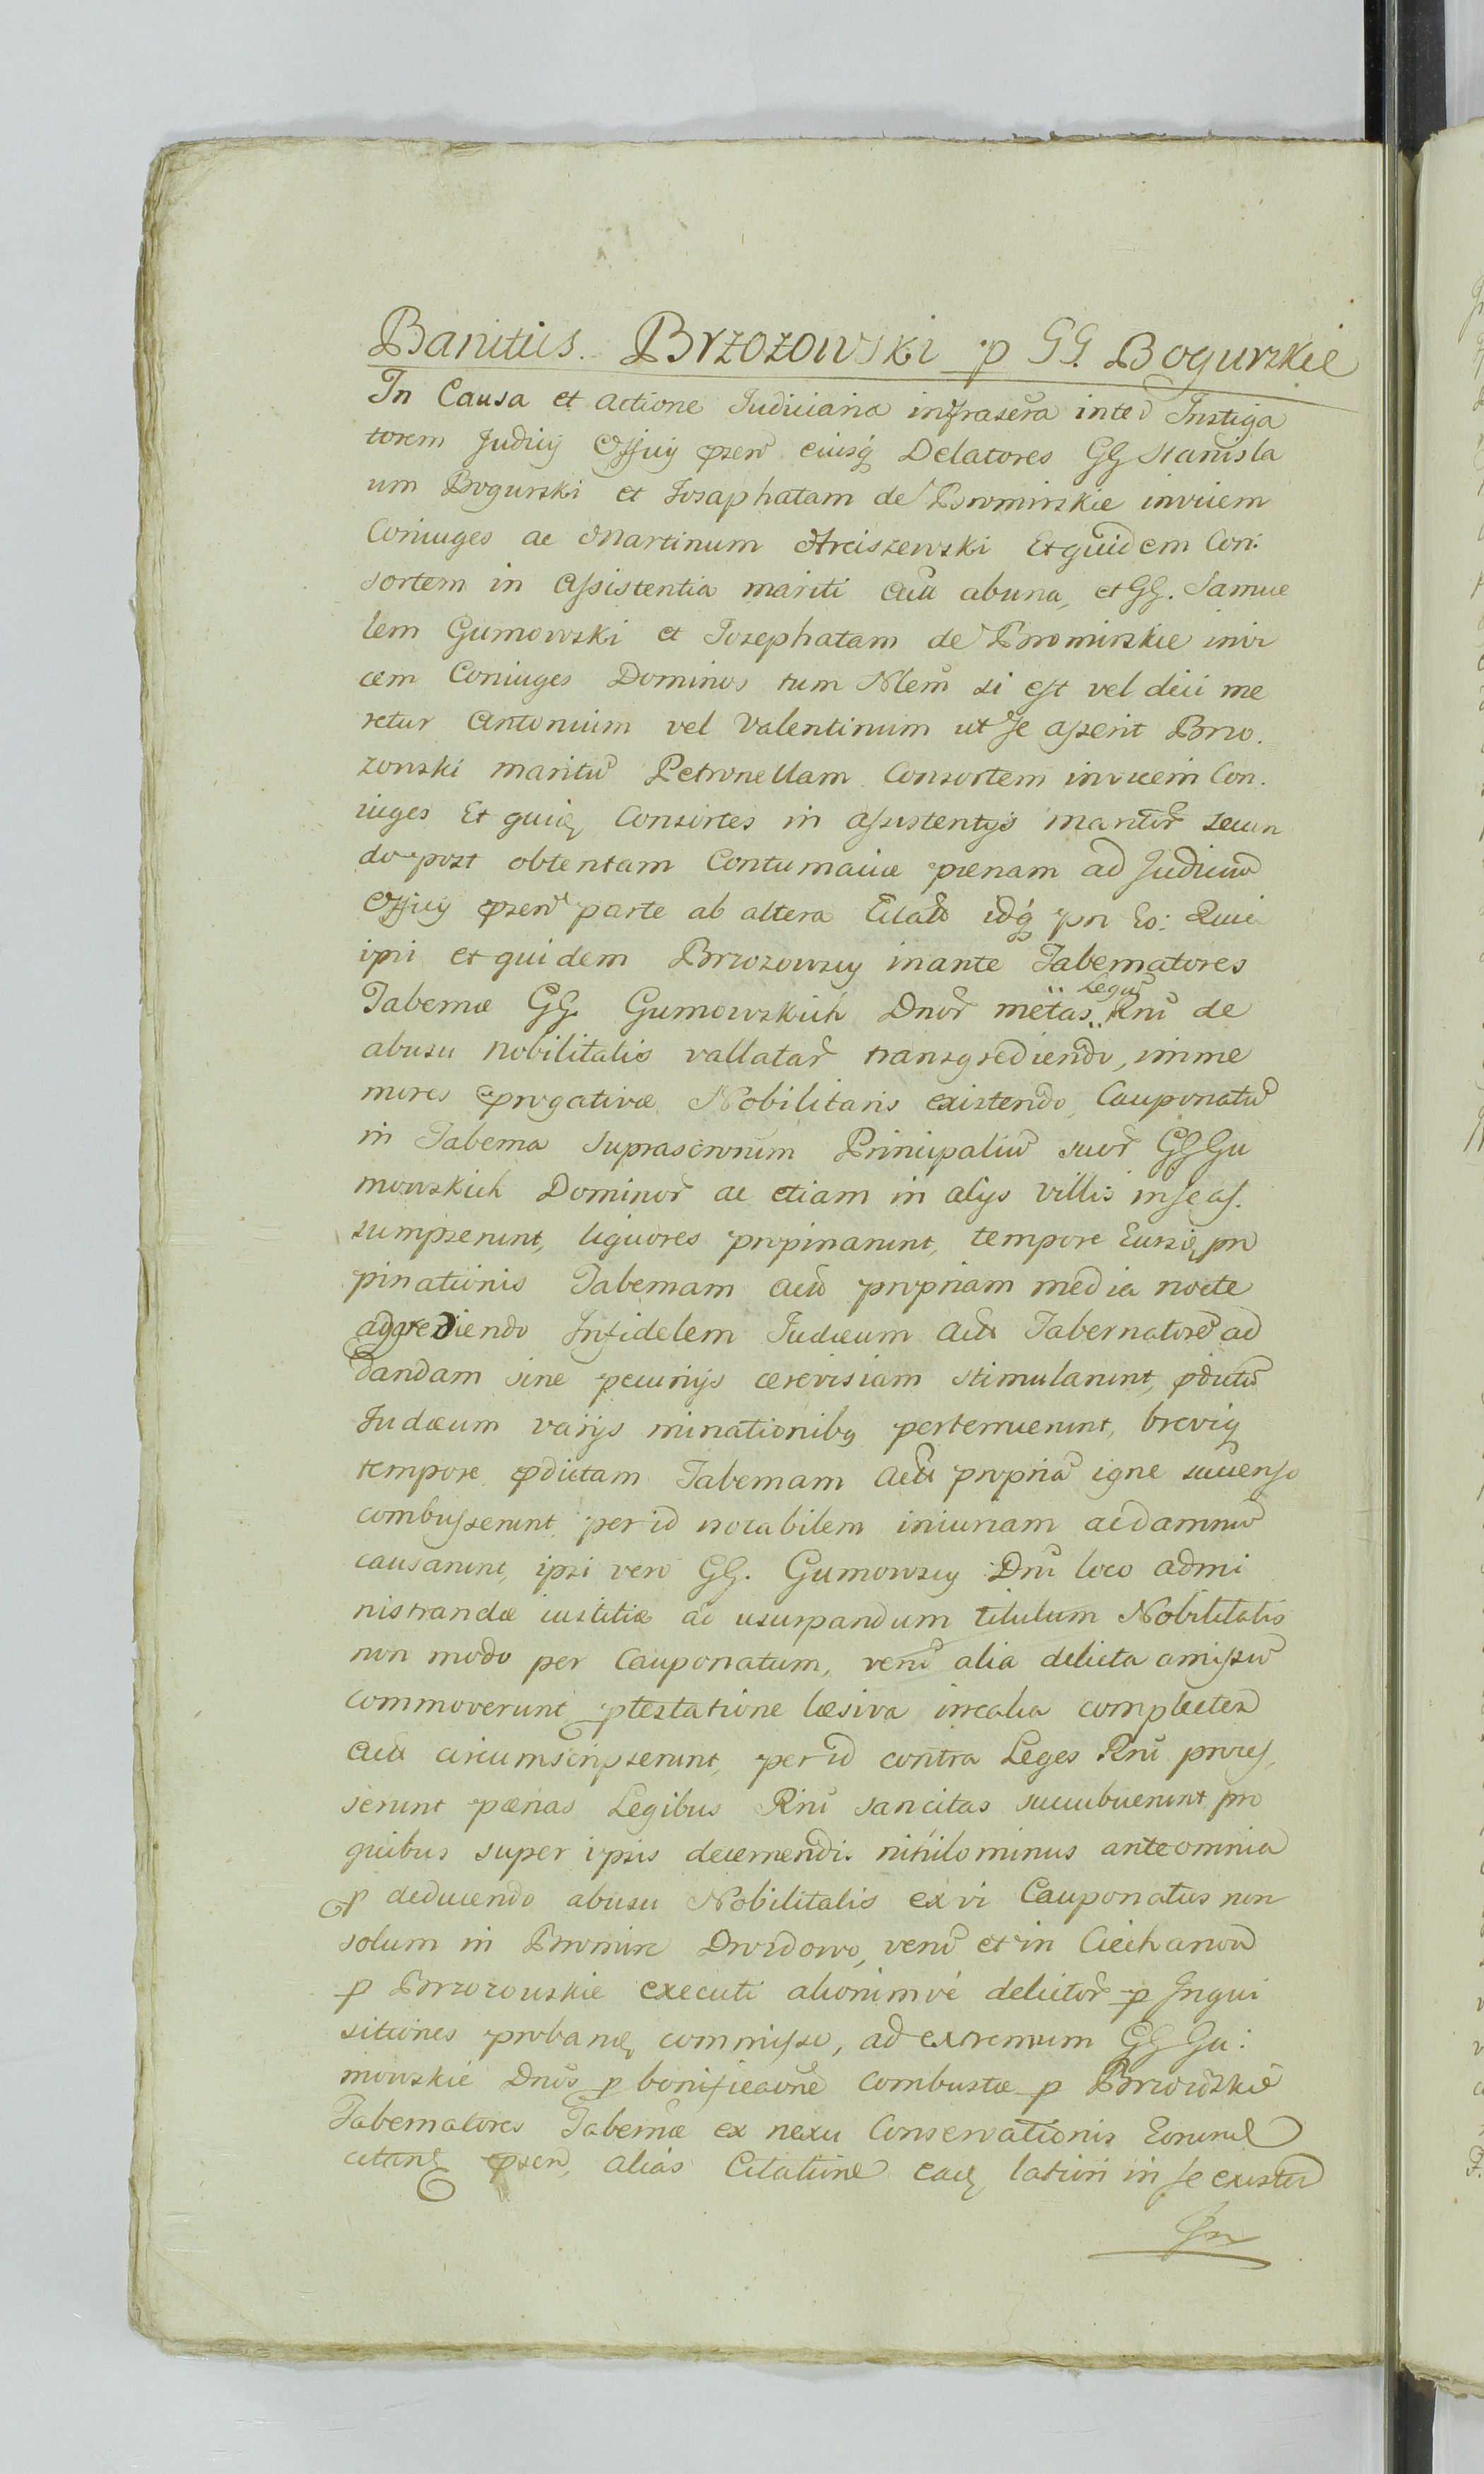 Banitus. Brzozowski p GG. Bogurskie
In Causa et actione Judiciaria infrascra inter Instiga
torem Judicij Officij pzen eiusq Delatores GG Stanisla
um Bogurski et Josaphatam de Bromirskie invicem
Coniuges ac Martinum Arciszewski Et quidem Con:
sortem in assistentia mariti Actu abuna, et GG. Samue
lem Gumowski et Josephatam de Bromirskie invi
cem Coniuges Dominos tum Nlem si est vel dici me
retur Antonium vel Valentinum ut se asserit Brzo.
zowski maritu Petronellam Consortem invicem Con.
iuges Et quidq Consortes in assistentijs maritor secun
do post obtentam Contumaciæ pænam ad Judiciu
Officij pzen parte ab altera Citatis idq pn Eo: Quia
ipsi et quidem Brzozowscy inante Tabernatores
Tabernæ GG. Gumowskich Dnor metas Legu Rni de
abusu nobilitatis vallatar transgrediendo, imme
mores prrogativæ Nobilitaris existendo, Cauponatu
in Taberna suprascrorum Principaliu suor GG Gu
mowskich Dominor ac etiam in alijs villis in se as.
sumpserunt, liquores propinarunt, tempore Eiusdq pro
pinationis Tabernam Actu propriam media nocte
aggrediendo Infidelem Judæum Actu Tabernatore ad
dandam sine pecunijs cerevisiam stimularunt, pdictu
Judæum varijs minationibq perterruerunt, breviq
tempore pdictam Tabernam Actu propria igne succenso
combusserunt, per id notabilem iniuriam ac damnu
causarunt, ipsi vero GG. Gumowscy Dni loco admi
nistrandæ iustitiæ ac usurpandum titulum Nobilitatis
non modo per Cauponatum, veru alia delicta amissu
commoverunt ptestatione læsiva irrealia complecten
Actu circumscripserunt, per id contra Leges Rni proces,
serunt pænas Legibus Rni sancitas succubuerunt pro
quibus super ipsis decernendi. nihilominus ante omnia
p deducendo abusu Nobilitatis ex vi Cauponatus non
solum in Bromirz Drozdowo, veru et in Ciechanow
p Brzozowskie executi aliorumve delictor p Inqui
sitiones probandq commisso, ad extremum GG Gu:
mowskie Dnos p bonificaone combustæ p Brzozowskie
Tabernatores Tabernæ ex nexu Conservationis Eorund
citandq pzen, alias Citatione eadq latiori in se existen